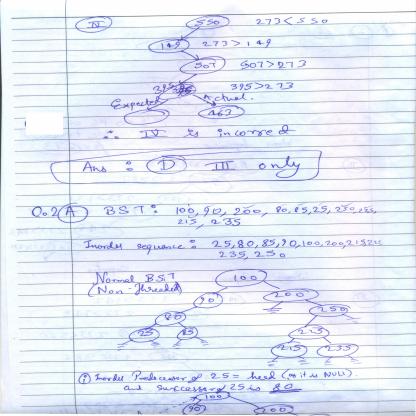 IV 550 273 < 550
149 273 > 149
507 507 > 273
395 395 > 273
Expected Actual.
463
∴ IV is incorrect
Ans : D III only
Q.2 A BST : 100, 90, 200, 80, 85, 25, 250, 225,
215, 235
Inorder sequence : 25, 80, 85, 90, 100, 200, 215, 225
235, 250
Normal BST 100
(Non-Threaded) 90 200
80 250
25 85 225
215 235
(i) Inorder Predecessor of 25 = head (as it is NULL).
and successor of 25 is 80
100
90 200